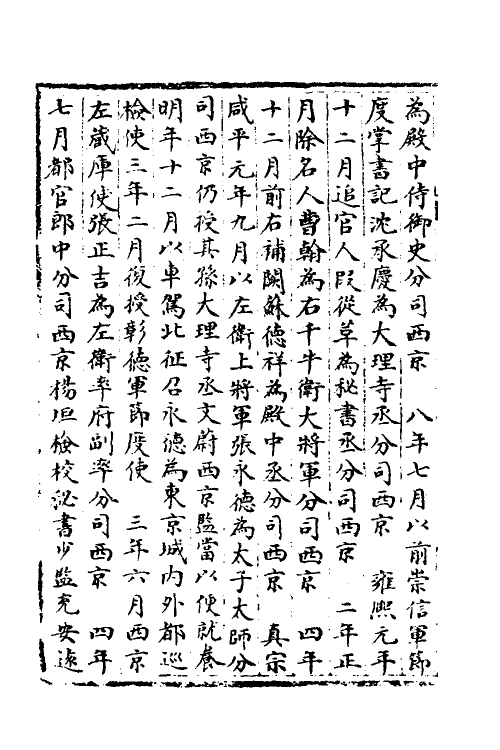 為殿中侍御史分司西京　八年七月以前崇信軍節
度掌書記沈承慶為大理寺丞分司西京　雍熙元年
十二月追官人段從革為秘書丞分司西京　二年正
月除名人曹翰為右千牛衛大將軍分司西京　四年
十二月前右補闕蘇德祥為殿中丞分司西京　真宗
咸平元年九月以左衛上將軍張永德為太子太師分
司西京仍授其孫大理寺丞文蔚西京監當以便就養
明年十二月以車駕北征召永德為東京城內外都巡
檢使三年二月復授彰德軍節度使　三年六月西京
左蔵庫使張正吉為左衛率府副率分司西京　四年
七月都官郎中分司西京楊坦檢校祕書少監充安遠